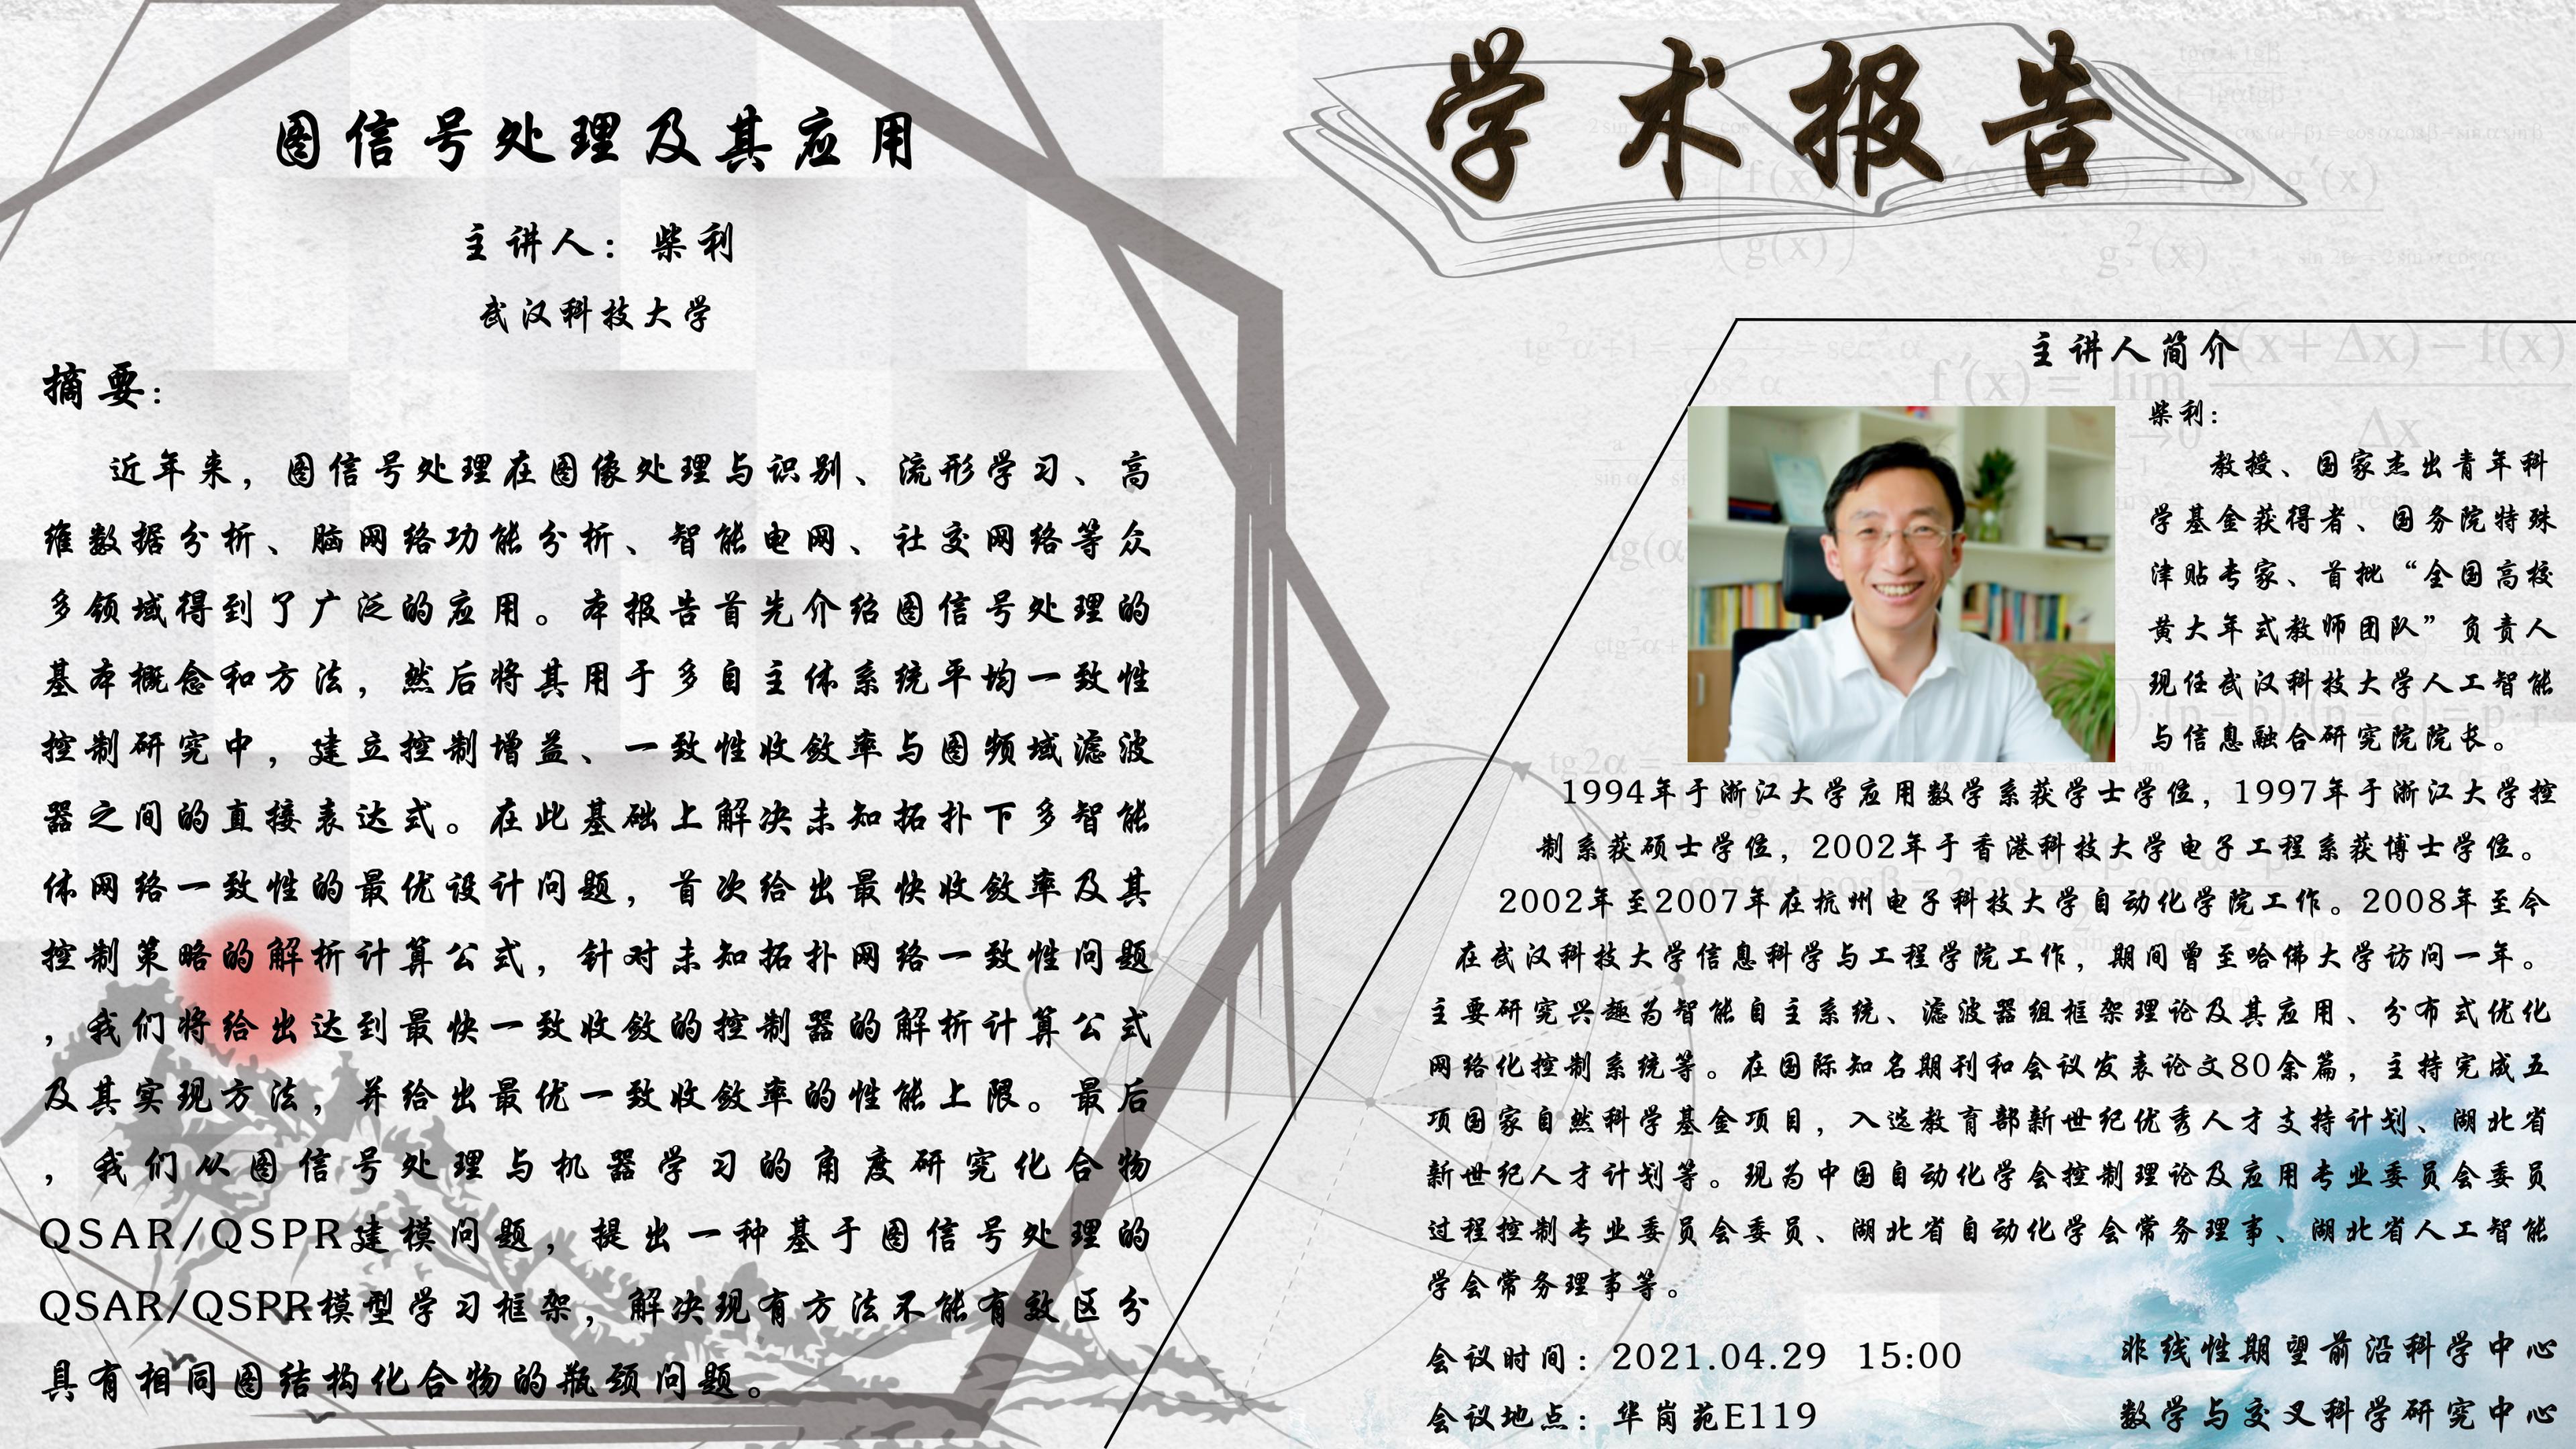 学术报告
图信号处理及其应用
主讲人：柴利
武汉科技大学
摘要：
近年来，图信号处理在图像处理与识别、流形学习、高
维数据分析、脑网络功能分析、智能电网、社交网络等众
多领域得到了广泛的应用。本报告首先介绍图信号处理的
基本概念和方法，然后将其用于多自主体系统平均一致性
控制研究中，建立控制增益、一致性收敛率与图频域滤波
器之间的直接表达式。在此基础上解决未知拓扑下多智能
体网络一致性的最优设计问题，首次给出最快收敛率及其
控制策略的解析计算公式，针对未知拓扑网络一致性问题
，我们将给出达到最快一致收敛的控制器的解析计算公式
及其实现方法，并给出最优一致收敛率的性能上限。最后
，我们从图信号处理与机器学习的角度研究化合物
QSAR/QSPR建模问题，提出一种基于图信号处理的
QSAR/QSPR模型学习框架，解决现有方法不能有效区分
具有相同图结构化合物的瓶颈问题。
主讲人简介
柴利：
教授、国家杰出青年科
学基金获得者、国务院特殊
津贴专家、首批“全国高校
黄大年式教师团队”负责人
现任武汉科技大学人工智能
与信息融合研究院院长。
1994年于浙江大学应用数学系获学士学位，1997年于浙江大学控
制系获硕士学位，2002年于香港科技大学电子工程系获博士学位。
2002年至2007年在杭州电子科技大学自动化学院工作。2008年至今
在武汉科技大学信息科学与工程学院工作，期间曾至哈佛大学访问一年。
主要研究兴趣为智能自主系统、滤波器组框架理论及其应用、分布式优化
网络化控制系统等。在国际知名期刊和会议发表论文80余篇，主持完成五
项国家自然科学基金项目，入选教育部新世纪优秀人才支持计划、湖北省
新世纪人才计划等。现为中国自动化学会控制理论及应用专业委员会委员
过程控制专业委员会委员、湖北省自动化学会常务理事、湖北省人工智能
学会常务理事等。
会议时间：2021.04.29 15:00
会议地点：华岗苑E119
非线性期望前沿科学中心
数学与交叉科学研究中心